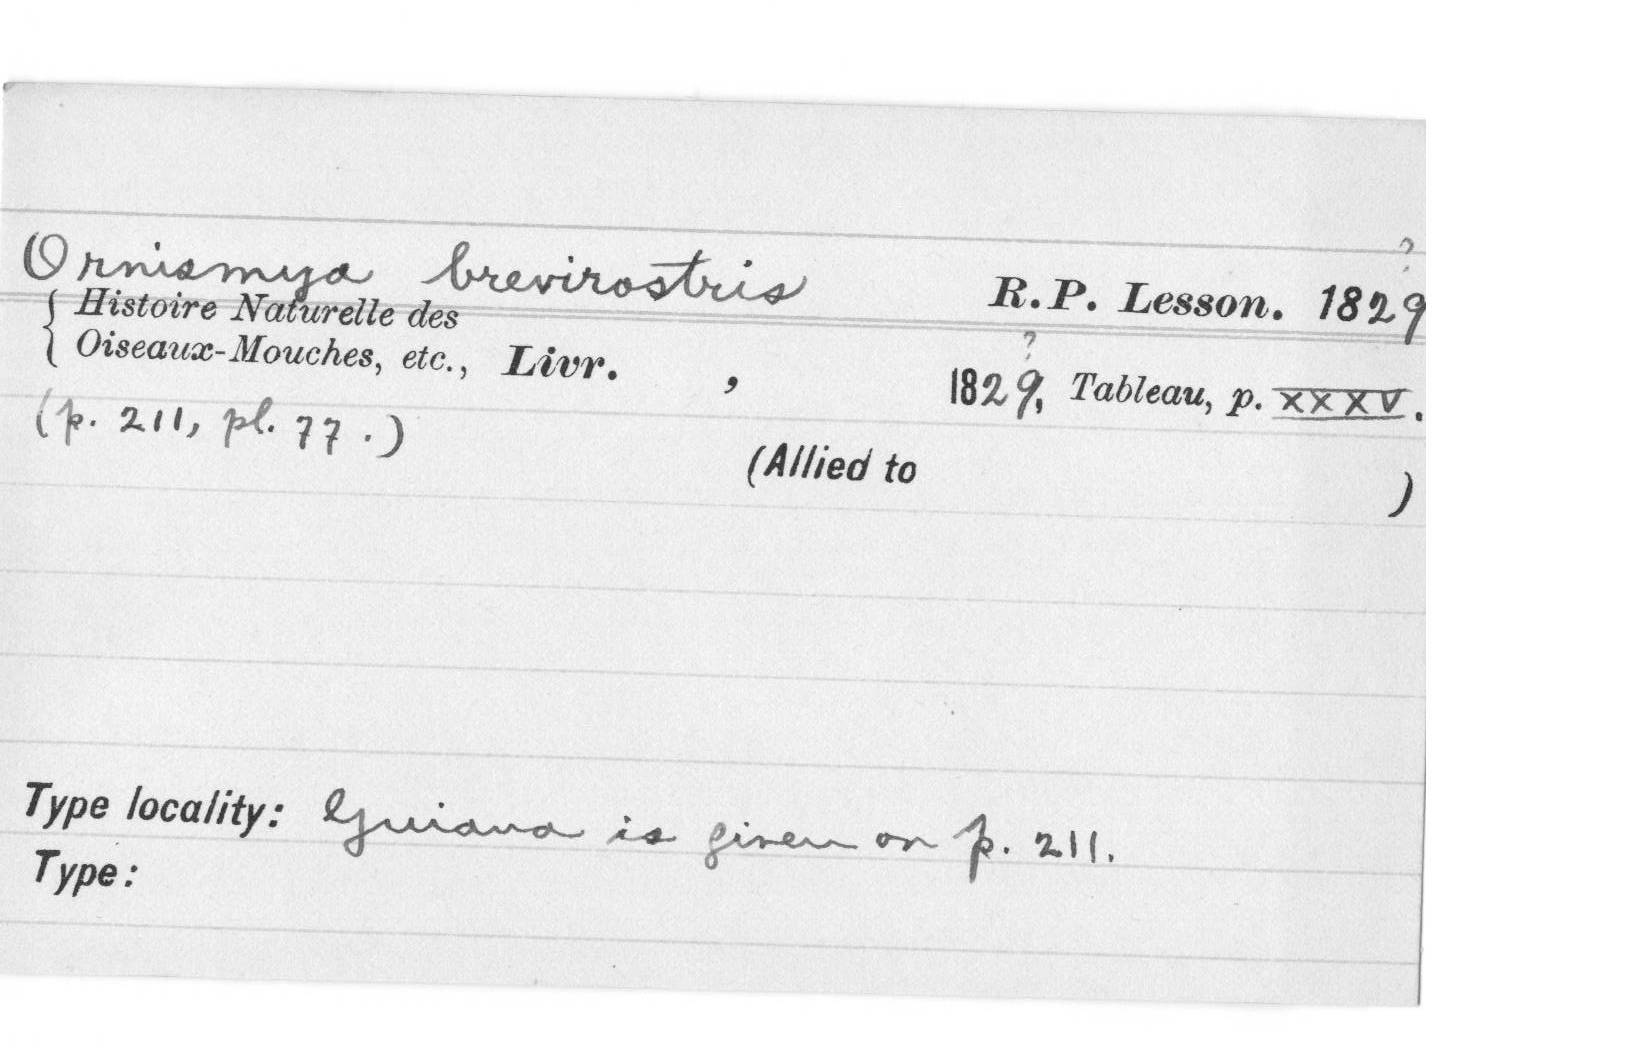 ?
Ornismya brevirostris R.P. Lesson. 1829
{ Histoire Naturelle des
Oiseaux-Mouches, etc., Livr. , 1829?, Tableau, p. XXXV.
(p. 211, pl. 77.)
(Allied to )
Type locality: Guiana is given on p. 211.
Type: